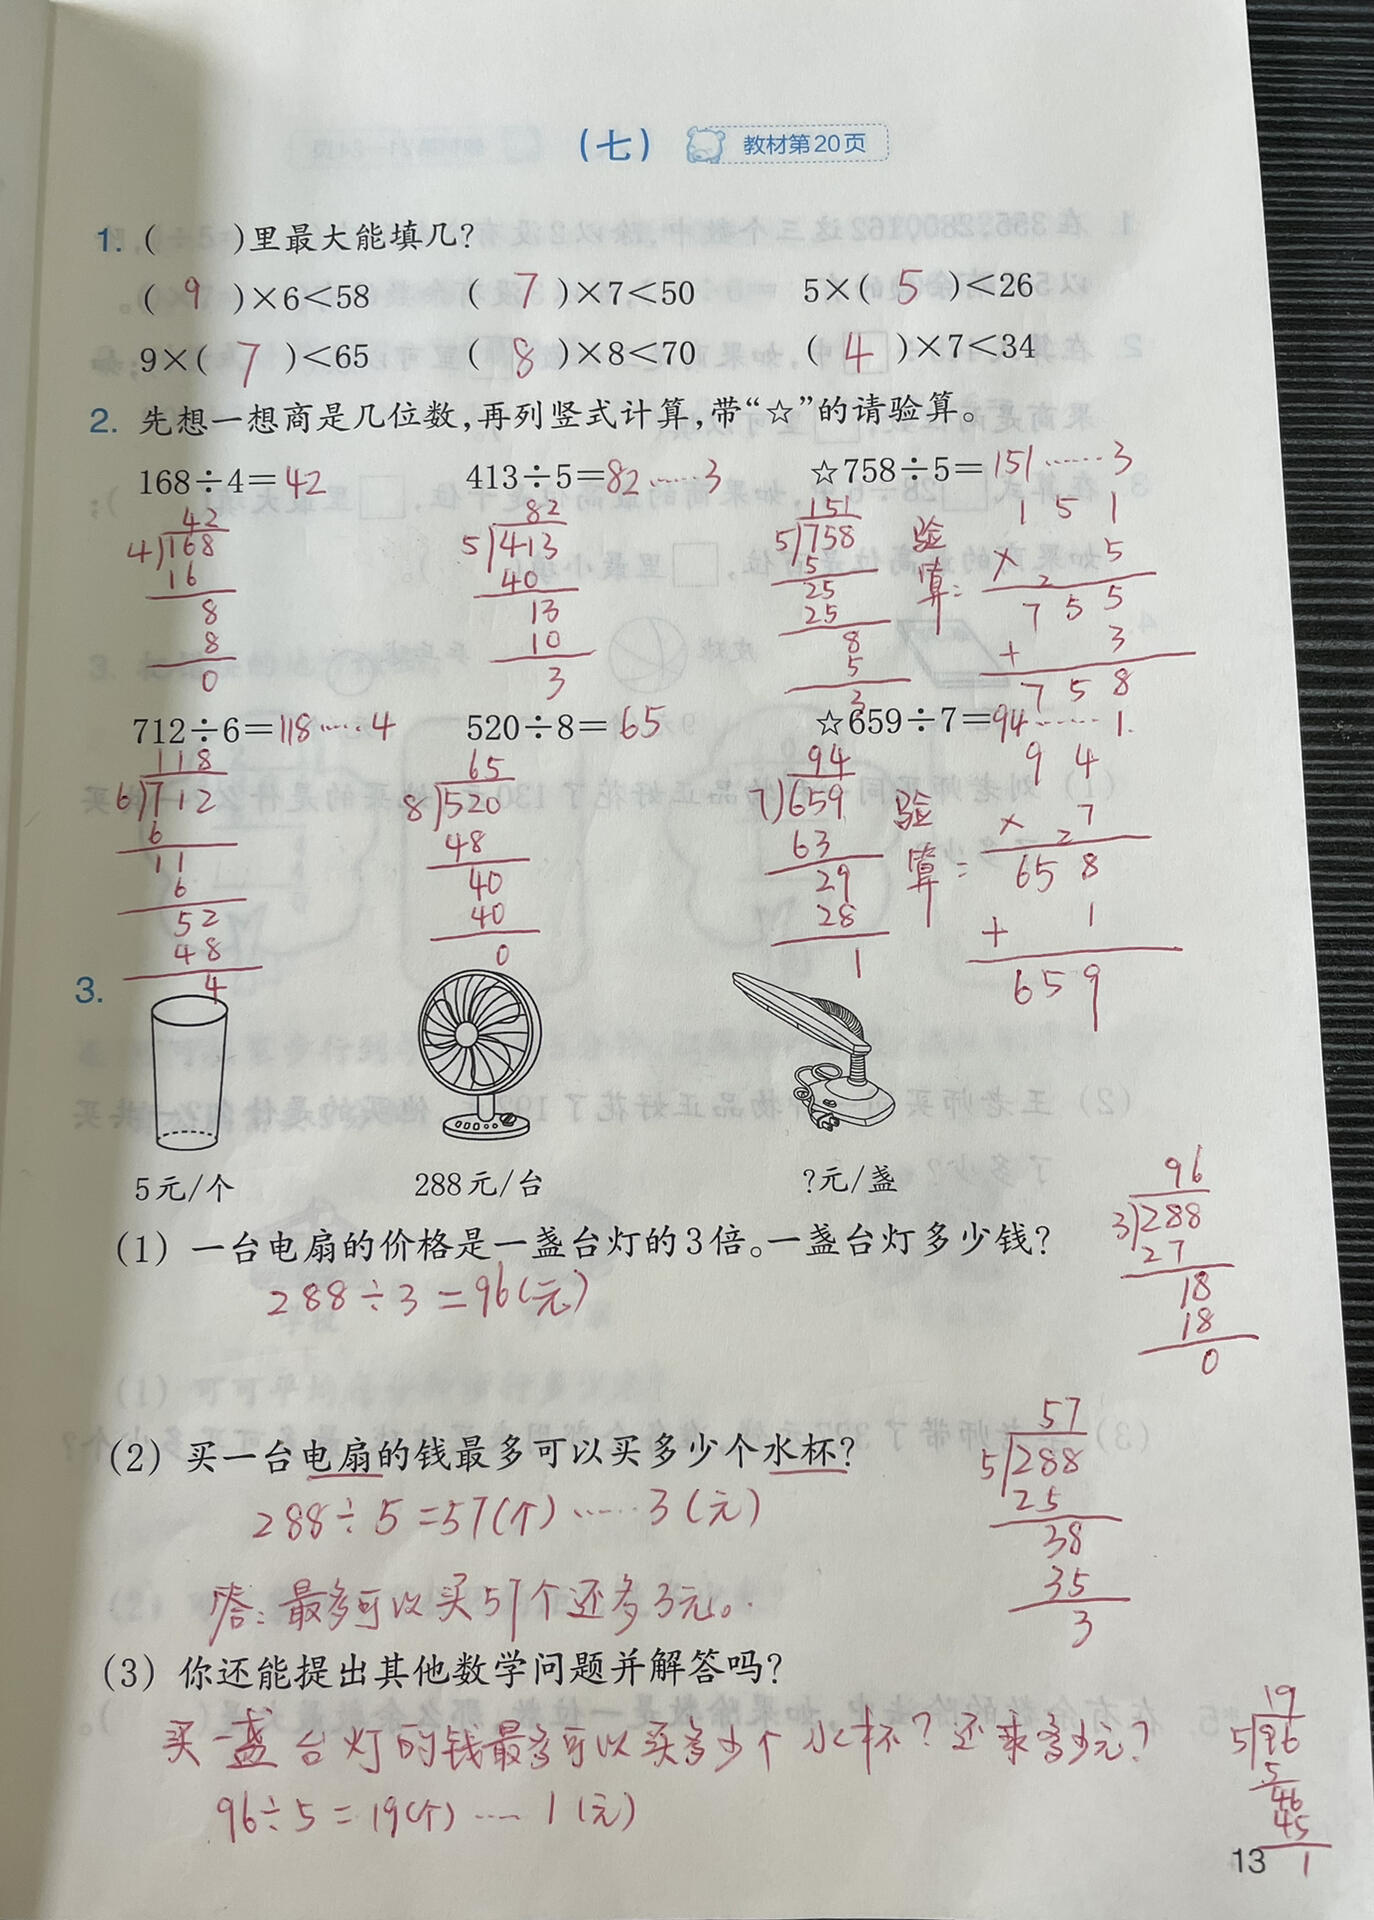 （七） 教材第20页
1. （ ）里最大能填几？
（ 9 ）×6<58 （ 7 ）×7<50 5×（ 5 ）<26
9×（ 7 ）<65 （ 8 ）×8<70 （ 4 ）×7<34
2. 先想一想商是几位数，再列竖式计算，带“☆”的请验算。
168÷4=42 413÷5=82……3 ☆758÷5=151……3
42
4)168
16
8
8
0
82
5)413
40
13
10
3
151
5)758
5
25
25
8
5
3
验算：
1 5 1
× 5
2
7 5 5
+ 3
7 5 8
712÷6=118……4 520÷8=65 ☆659÷7=94……1
118
6)712
6
11
6
52
48
4
65
8)520
48
40
40
0
94
7)659
63
29
28
1
验算：
9 4
× 7
2
658
+ 1
659
3.
5元/个 288元/台 ?元/盏
（1）一台电扇的价格是一盏台灯的3倍。一盏台灯多少钱？
288÷3=96(元)
96
3)288
27
18
18
0
（2）买一台电扇的钱最多可以买多少个水杯？
288÷5=57(个)……3(元)
57
5)288
25
38
35
3
答：最多可以买57个还多3元。
（3）你还能提出其他数学问题并解答吗？
买一盏台灯的钱最多可以买多少个水杯？还乘多少元？
96÷5=19(个)……1(元)
19
5)96
5
46
45
1
13